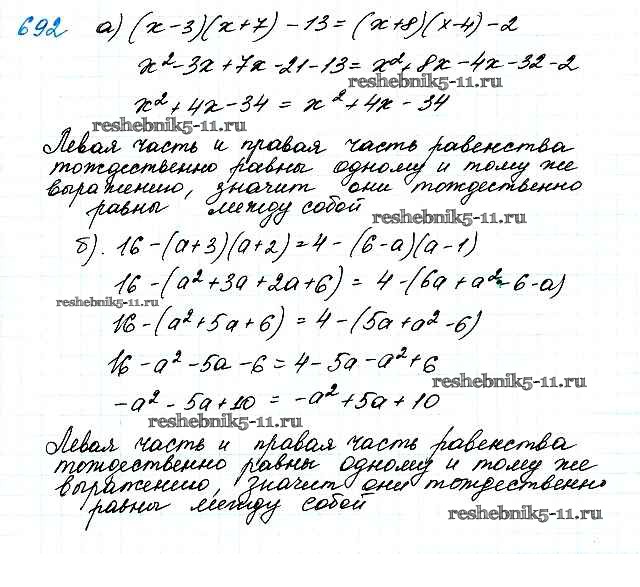 692 а) (x-3)(x+7)-13=(x+8)(x-4)-2
x²-3x+7x-21-13=x²+8x-4x-32-2
reshebnik5-11.ru
x²+4x-34=x²+4x-34
reshebnik5-11.ru
Левая часть и правая часть равенства
тождественно равны одному и тому же
выражению, значит они тождественно
равны между собой
reshebnik5-11.ru
б). 16-(a+3)(a+2)=4-(6-a)(a-1)
16-(a²+3a+2a+6)=4-(6a+a²-6-a)
reshebnik5-11.ru
16-(a²+5a+6)=4-(5a+a²-6)
16-a²-5a-6=4-5a-a²+6
reshebnik5-11.ru
-a²-5a+10=-a²+5a+10
reshebnik5-11.ru
Левая часть и правая часть равенства
тождественно равны одному и тому же
выражению, значит они тождественно
равны между собой
reshebnik5-11.ru